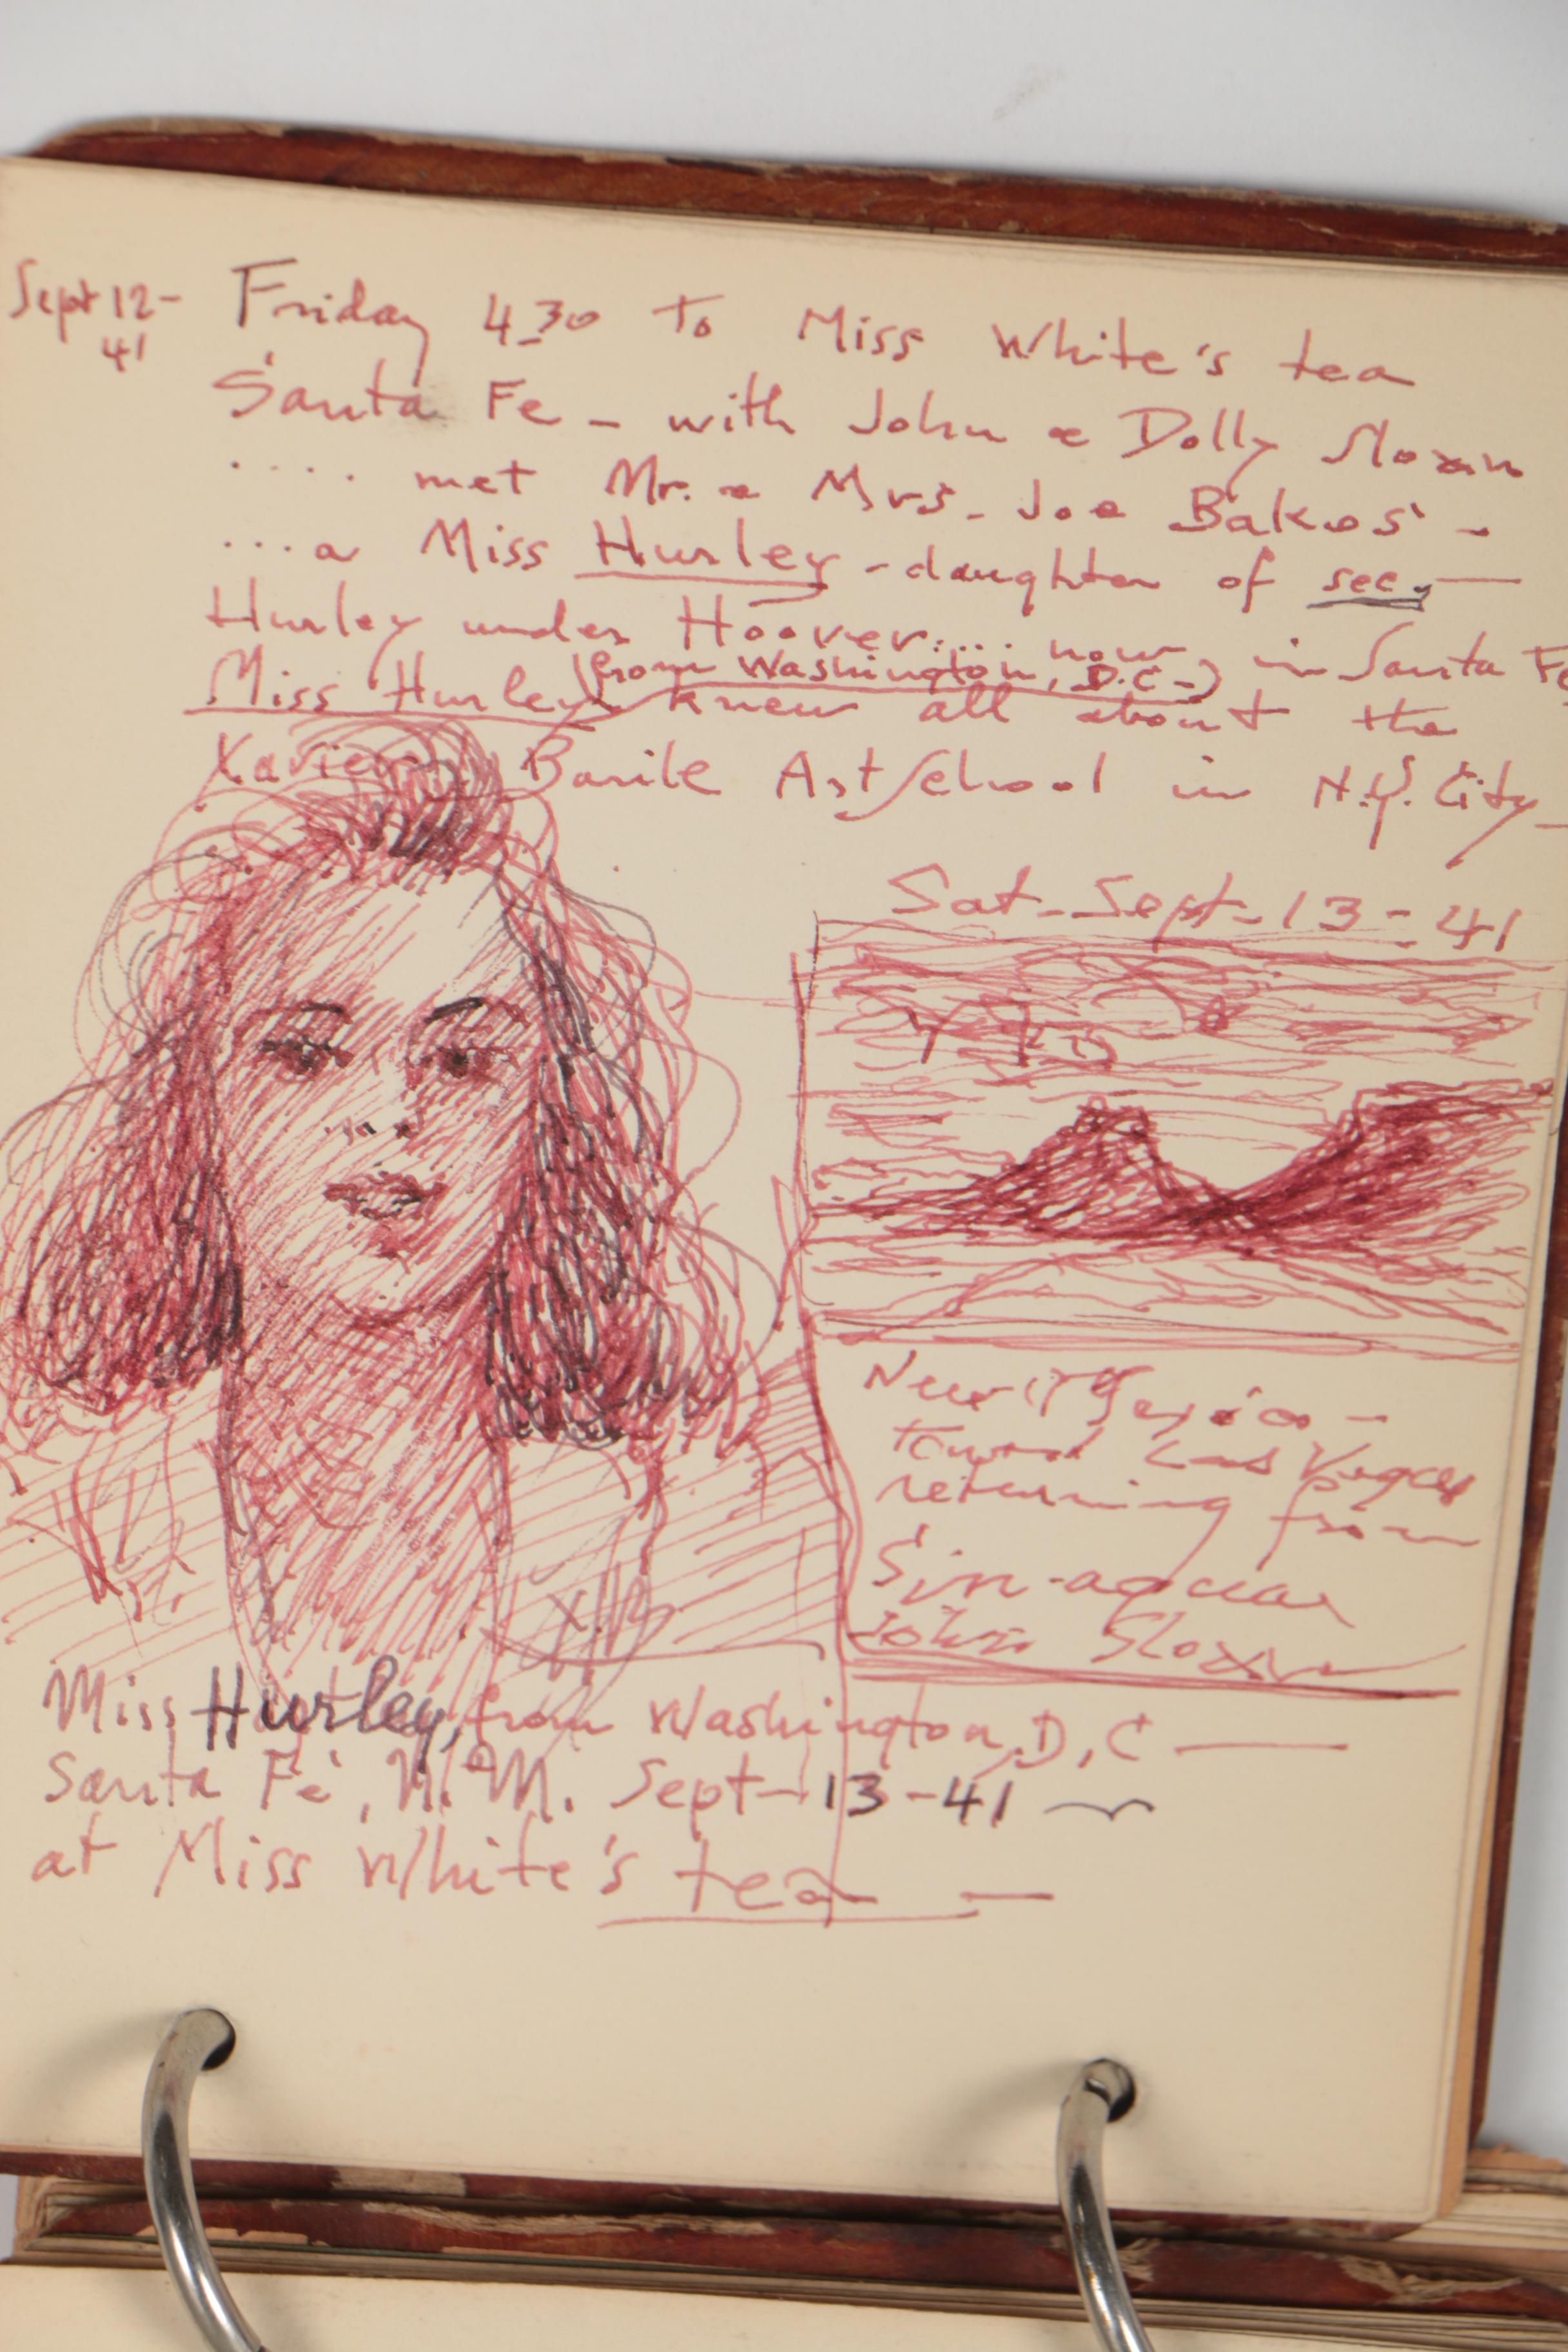 Sept 12-
41
Friday 4.30 to Miss White's tea
Santa Fe - with John & Dolly Sloan
.... met Mr. & Mrs. Joe Bakos -
... a Miss Hurley - daughter of sec. —
Hurley under Hoover.... now in Santa Fe
(from Washington, D.C.-)
Miss Hurley knew all about the
Xavier J. Barile Art School in N.Y. City -
Sat - Sept - 13 - 41
New Mexico -
toward Las Vegas
returning from
Sin-agua
John Sloan
XJB
Miss Hurley, from Washington, D, C —
Santa Fe, N.M. Sept - 13 - 41
at Miss White's tea —